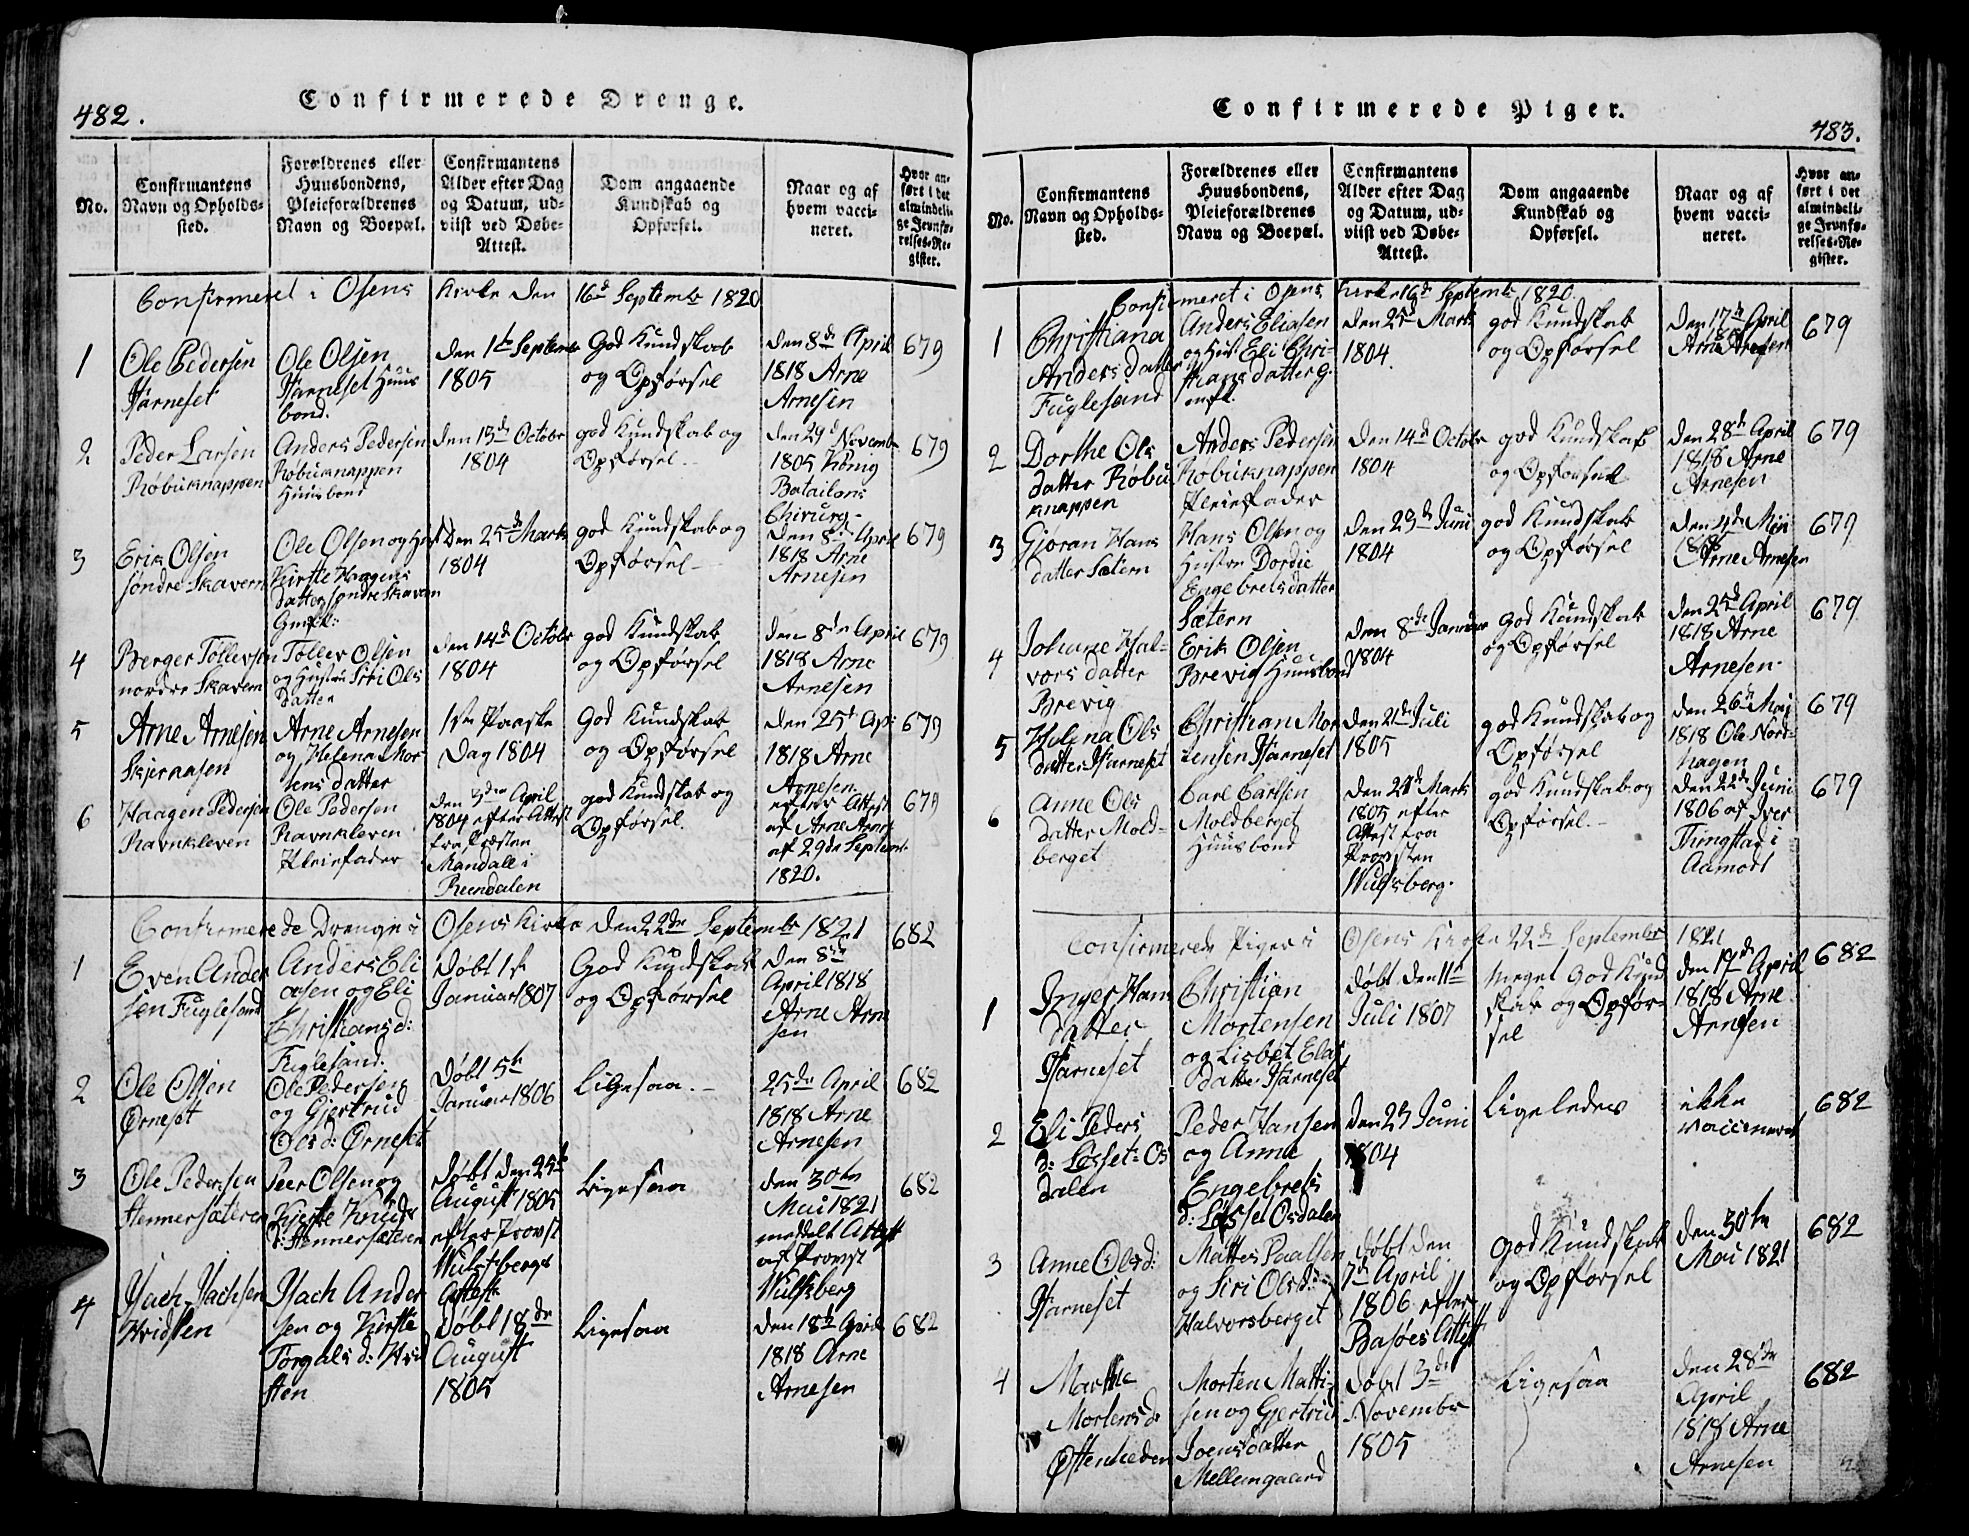 482.
Confirmerede Drenge.
No.
Confirmantens
Navn og Opholds-
sted.
Forældrenes eller
Huusbondens,
Pleieforældrenes
Navn og Boepæl.
Confirmantens
Alder efter Dag
og Datum, ud-
viist ved Døbe-
Attest.
Dom angaaende
Kundskab og
Opførsel.
Naar og af
hvem vacci-
neret.
Hvor an-
ført i det
almindeli-
ge Jevnfø-
relses-Re-
gister.
Confirmeret i Osens Kirke den 16d Septembr 1820
1
Ole Pedersen
Ole Olsen
Huus
bond.
den 1te Septembr
1805
God Kundskab
og Opførsel
den 8de April
1818 Arne
Arnesen
679
2
Peder Larsen
Røbuknappen
Anders Pedersen
Røbuknappen
Huusbond
den 13de Octobr
1804
god Kundskab og
Opførsel.-
den 29d Novembr
1805 König
Batailons
Chirurg-
679
3
Erik Olsen
søndre Skavern
Ole Olsen og Hust
Kirste Haagens
datter søndre Skavern
Gmfk:
den 25de Marts
1804
god Kundskab og
Opførsel-
den 8de April
1818 Arne
Arnesen
679
4
Berger Tollevsen
nordre Skavern
Tollev Olsen
og Hustru Siri Ols
datter
den 14d Octobr
1804
god Kundskab
og Opførsel
den 8de April
1818 Arne
Arnesen
679
5
Arne Arnesen
Skjernaasen
Arne Arnesen
og Helena Mor
tens datter
1ste Paaske
Dag 1804
God Kundskab
og Opførsel
den 25d Apr
1818 Arne
Arnesen
679
6
Haagen Pedersen
Ravnkleven
Ole Pedersen
Ravnkleven
Pleiefader
den 3den April
1804 efter Attest
fra Præsten
Mandall i
Reendalen
god Kundskab og
Opførsel.
efter Attest
af Arne Arnes
af 29de Septembr
1820.
679
Confirmerede Drenge i Osens Kirke den 22de Septembr 1821
682
1
Even Ander
sen Fuglesand
Anders Eli
asen og Eli
Christians d:
Fuglesand.
Døbt 1st
Januar 1807
God Kundskab
og Opførsel
den 8de
April 1818
Arne Arne
sen
2
Ole Olsen
Ørneset
Ole Pedersen
og Gjertrud
Ols d: Ørneset
Døbt 5te
Januar 1806
Ligesaa.-
25de April
1818 Arne
Arnesen
682
3
Ole Pedersen
Stennersæteren
Peer Olsen og
Kirste Knuds
d: Stennersæteren
Døbt den 25de
August 1805
efter Provst
Wulfsbergs
Attest
Ligesaa
den 30te
Mai 1821
meddelt Attest
af Provst
Wulfsberg
682
4
Isach Isachsen
Hvidsten
Isach Ander
sen og Kirste
Torgals d: Hvid
sten
Døbt 18de
August
1805
Ligesaa
den 18de April
1818 Arne
Arnesen
682
Confirmerede Piger.
483.
No.
Confirmantens
Navn og Opholds-
sted.
Forældrenes eller
Huusbondens,
Pleieforældrenes
Navn og Boepæl.
Confirmantens
Alder efter Dag
og Datum, ud-
viist ved Døbe-
Attest.
Dom angaaende
Kundskab og
Opførsel.
Naar og af
hvem vacci-
neret.
Hvor an-
ført i det
almindeli-
ge Jevnfø-
relses-Re-
gister.
Confirmeret i Osens Kirke 16d Septembr 1820.
1
Christiana
Anders datter
Fuglesand
Anders Eliasen
og Hust Eli Chri-
stians datter G.
den 25d Marts
1804.
god Kundskab
og Opførsel
den 17de April
Arne Arnesen
679
2
Dorthe Ols
datter Røbu
knappen
Anders Pedersen
Røbuknappen
Pleiefader
den 14d Octobr
1804
god Kundskab
og Opførsel
den 28de April
1818 Arne
Arnesen
679
3
Gjoran Hans
datter Sætern
Hans Olsen og
Hustru Dordie
Engebretsdatter
Sætern
den 29de Juni
1804
god Kundskab
og Opførsel
Arne Arnesen
679
4
Johane Hal-
vors datter
Brevig
Erik Olsen
Brevig Huusbond
den 8de Januar
1804
god Kundskab
og Opførsel
den 25d April
1818 Arne
Arnesen.
679
5
Helena Ols
datter
Christian Mor
tensen
den 21de Juli
1805
god Kundskab og
Opførsel
den 26de Mai
1818 Ole Nord-
hagen
679
6
Anne Ols
datter Mold-
berget
Carl Carlsen
Moldberget
Huusbond
1805 efter
Attest fra
Provsten
Wulfsberg.
god Kundskab og
Opførsel.-
den 22de Juni
1806 af Iver
i
Aamodt
679
Confirmerede Piger i Osens Kirke 22de Septembr 1821
1
Inger Hans
datter
Christian
Mortensen
og Lisbet Elas
datter
døbt den 11te
Juli 1807
Meget God Kund
skab og Opfør-
sel
den 17de April
1818 Arne
Arnesen
682
2
Eli Peders
d: Løsset: Os
dalen
Peder Hansen
og Anne
Engebrets
d: Løsset Osdalen
den 23 Juni
1804
Ligeledes
ikke
vaccineret
682
3
Anne Olsd:
Mattes Paalsen
og Siri Olsd:
Halvorsberget
Døbt den
7de April
1806 efter
Basøes Attest
God Kundskab
og Opførsel
den 30te
Mai 1821
682
4
Marthe
Mortens d:
Østenheden
Morten Matti-
sen og Gjertrud
Joensdatter
Mellemgaard
Døbt 3de
November
1805
Ligesaa
den 28de
April
1818 Arne
Arnesen
682